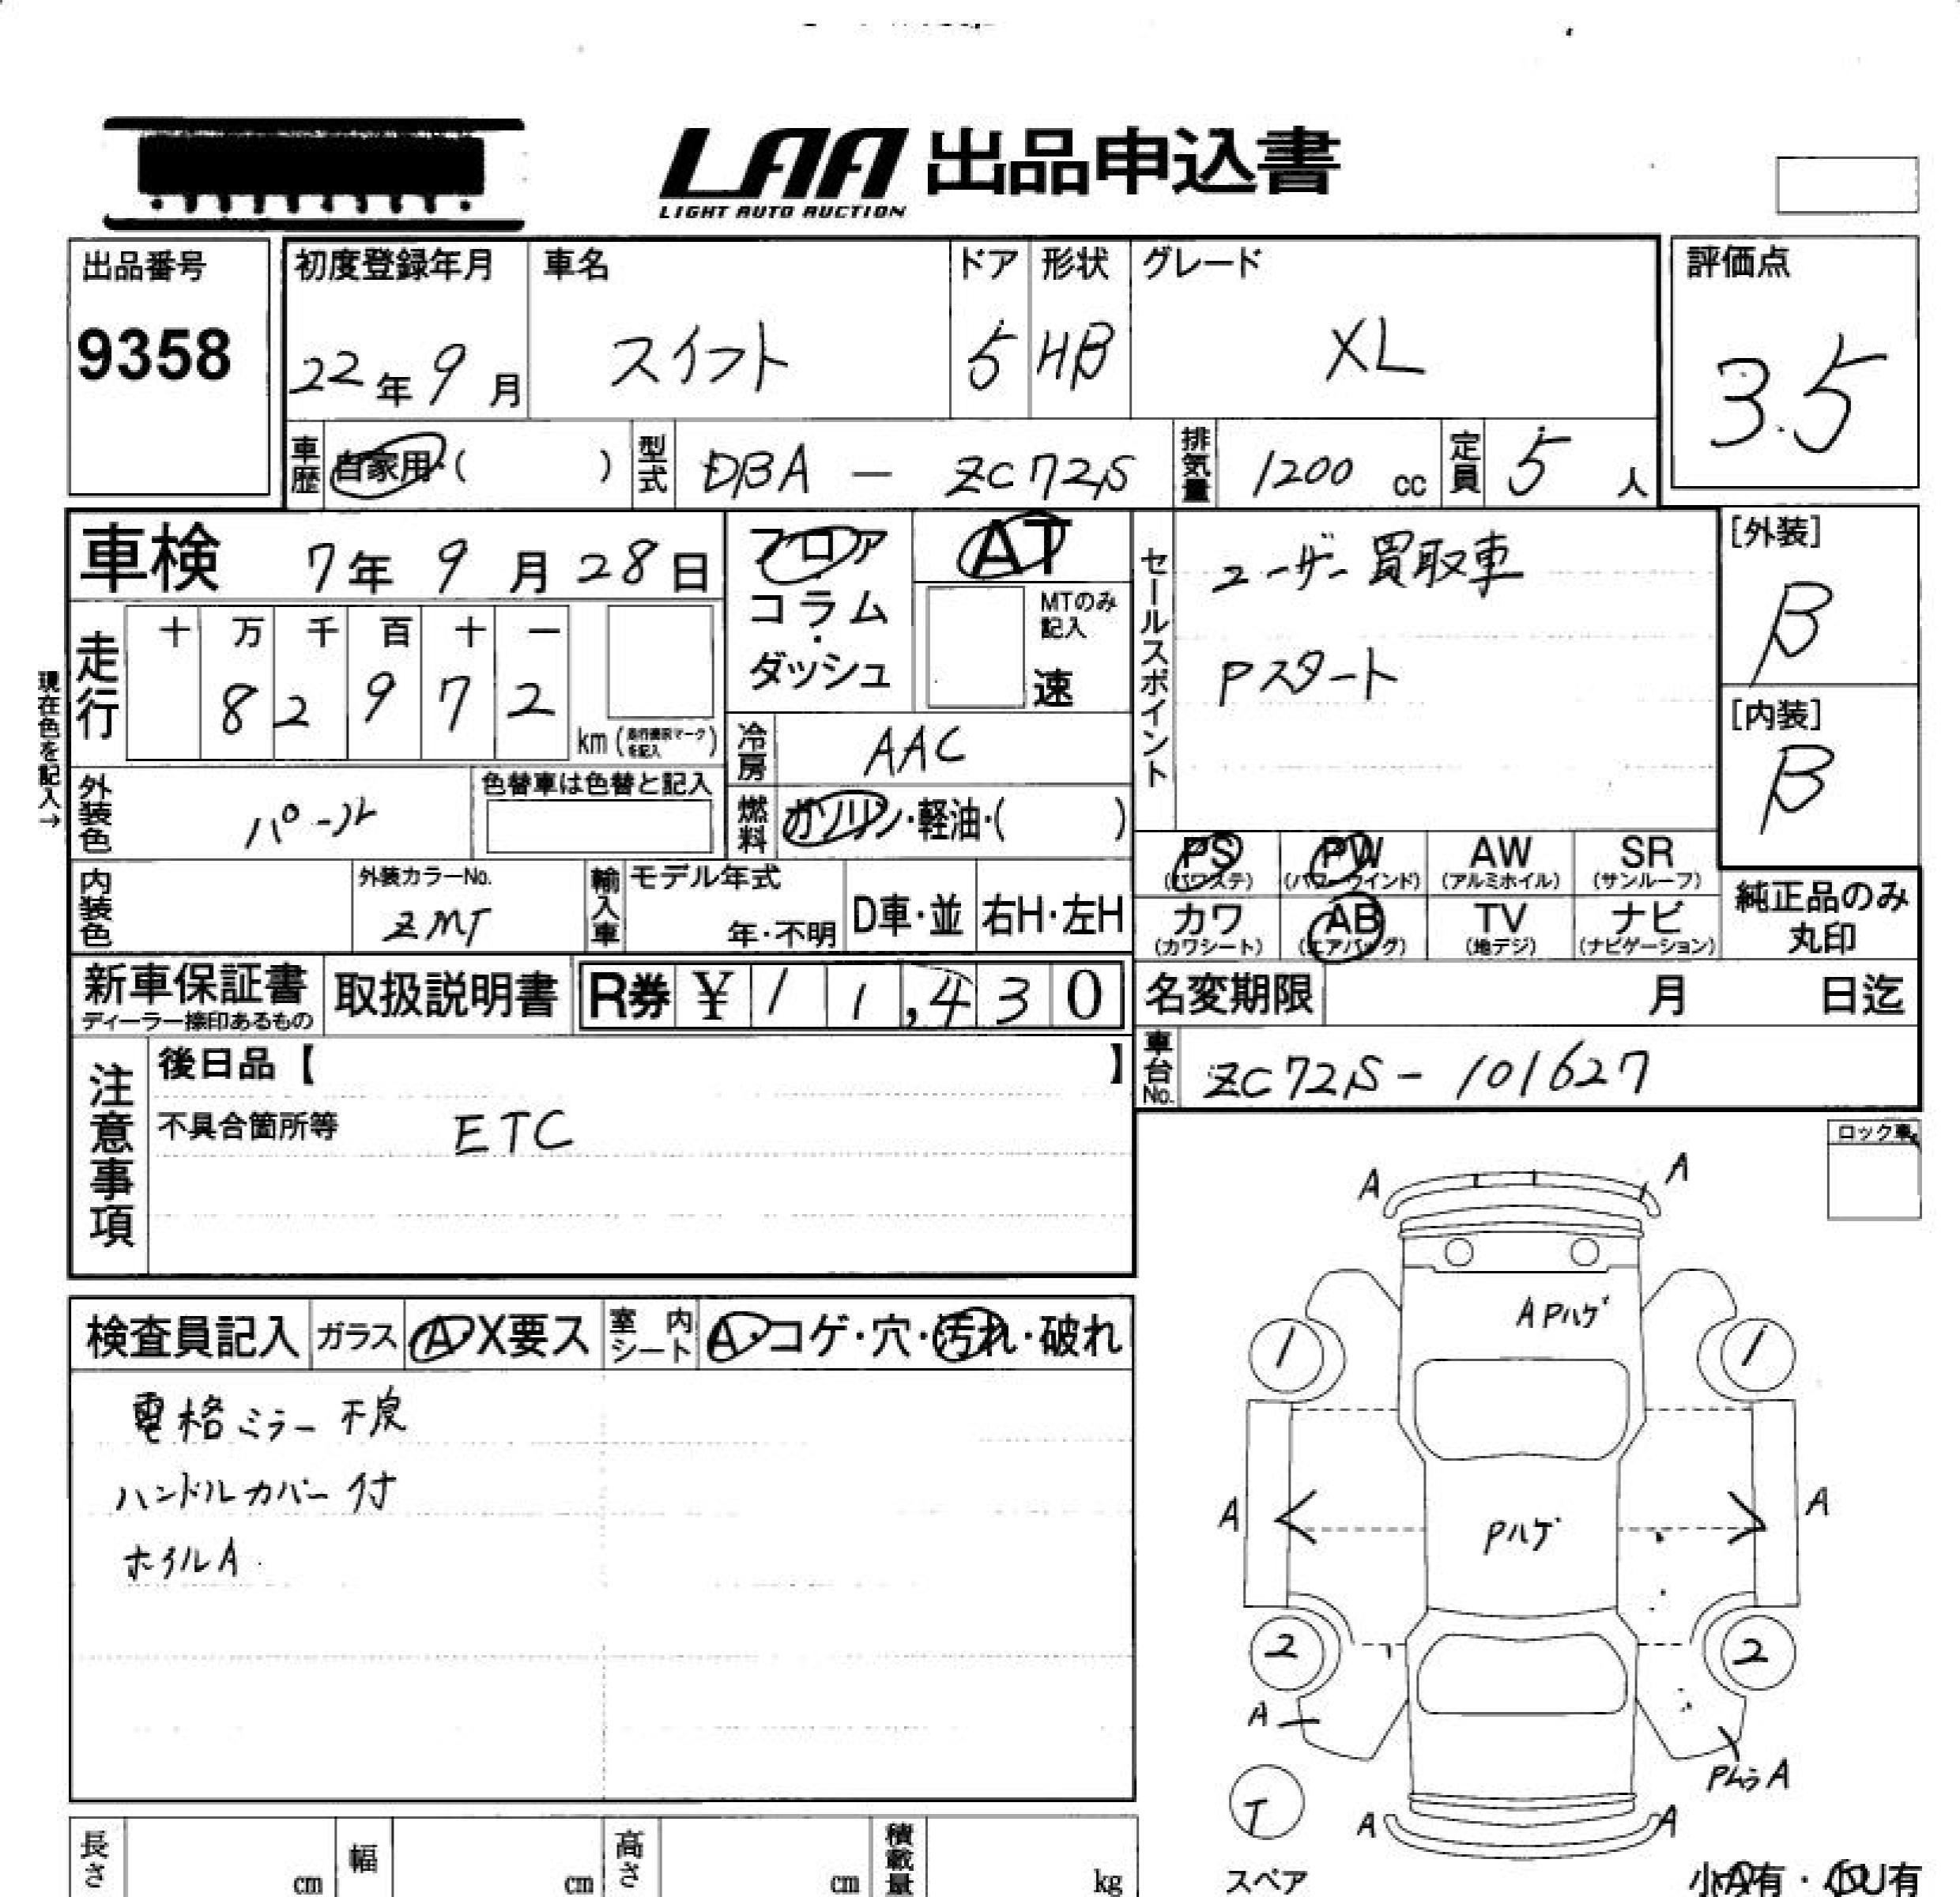 LAA 出品申込書
LIGHT AUTO AUCTION
出品番号
9358
初度登録年月
22年9月
車名
スイフト
ドア
5
形状
HB
グレード
XL
評価点
3.5
車歴
自家用・( )
型式
DBA - ZC72S
排気量
1200 cc
定員
5 人
車検 7年 9月 28日
走行
十 万 千 百 十 一
8 2 9 7 2
km (
を記入 )
現在色を記入→
フロア・コラム・ダッシュ
AT
MTのみ記入
速
冷房
AAC
燃料
ガソリン・軽油・( )
セールスポイント
ユーザー買取車
Pスタート
[外装]
B
[内装]
B
外装色
パール
色替車は色替と記入
内装色
外装カラーNo.
ZMT
輸入車
モデル年式
年・不明
D車・並
右H・左H
PS
(パワステ)
PW
(パワーウインド)
AW
(アルミホイル)
SR
(サンルーフ)
カワ
(カワシート)
AB
(エアバッグ)
TV
(地デジ)
ナビ
(ナビゲーション)
純正品のみ
丸印
新車保証書
ディーラー捺印あるもの
取扱説明書
R券 ¥ 1 1,4 3 0
名変期限 月 日迄
車台No.
ZC72S - 101627
注意事項
後日品【 】
不具合箇所等 ETC
ロック車
検査員記入
ガラス
A・X要ス
室内シート
A・コゲ・穴・汚れ・破れ
電格ミラー不良
ハンドルカバー付
ホイルA
A A
APハゲ
1 1
A A
Pハゲ
2 2
A
PムラA
T
A A
スペア
長さ cm
幅 cm
高さ cm
積載量 kg